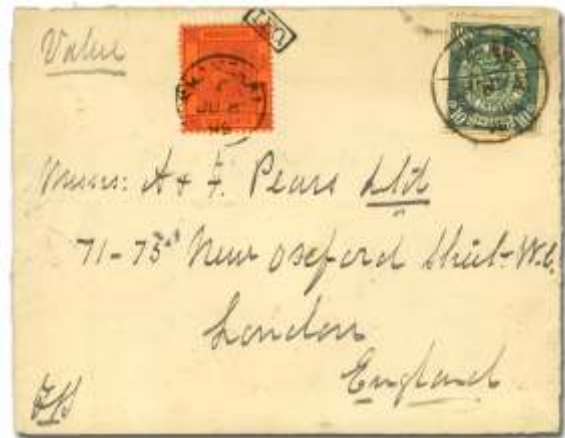 Value
Messrs: A & F. Pears Ltd
71-75 New Oxeford Street W.C.
London
England